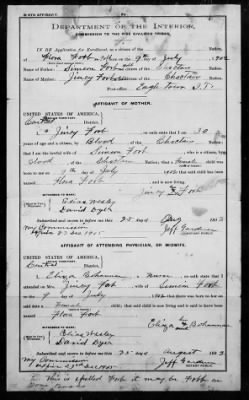 BIRTH AFFIDAVIT.
DEPARTMENT OF THE INTERIOR,
COMMISSION TO THE FIVE CIVILIZED TRIBES.
IN RE Application for Enrollment, as a citizen of the Choctaw Nation,
of Flora Foot, born on the 9th day of July, 1902
Name of Father: Simeon Foot a citizen of the Choctaw Nation.
Name of Mother: Jincy Foot a citizen of the Choctaw Nation.
Post-office Eagle Town I.T.
AFFIDAVIT OF MOTHER.
UNITED STATES OF AMERICA,
Central District.
I, Jincy Foot, on oath state that I am 30
years of age and a citizen, by Blood, of the Choctaw Nation;
that I am the lawful wife of Simeon Foot, who is a citizen, by
Blood of the Choctaw Nation; that a female child
was born to me on the day of July
Flora Foot
Jincy Foot
WITNESSES TO MARK:
Elias Wesley
David Dyer
Subscribed and sworn to before me this 25 day of Aug
My Commission
expires 23 Dec 1905
Jeff Gardner
NOTARY PUBLIC.
AFFIDAVIT OF ATTENDING PHYSICIAN, OR MIDWIFE.
UNITED STATES OF AMERICA,
Central District.
I, Eliza Bohannon, a Nurse, on oath state that I
attended on Mrs. Jincy Foot, wife of Simeon Foot
on the 9 day of July; that there was born to her
on said date a female child; that said child is now living and is said to have
been named Flora Foot
Eliza Bohannon
WITNESSES TO MARK:
Elias Wesley
David Dyer
Subscribed and sworn to before me this 25 day of August
My Commission
expires 23 Dec 1905
Jeff Gardner
NOTARY PUBLIC.
This is spelled Foot it may be Fobb on